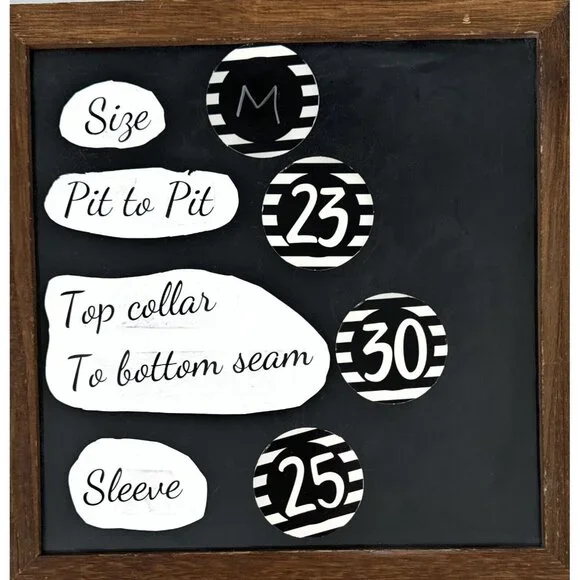 Size M
Pit to Pit 23
Top collar
To bottom seam 30
Sleeve 25